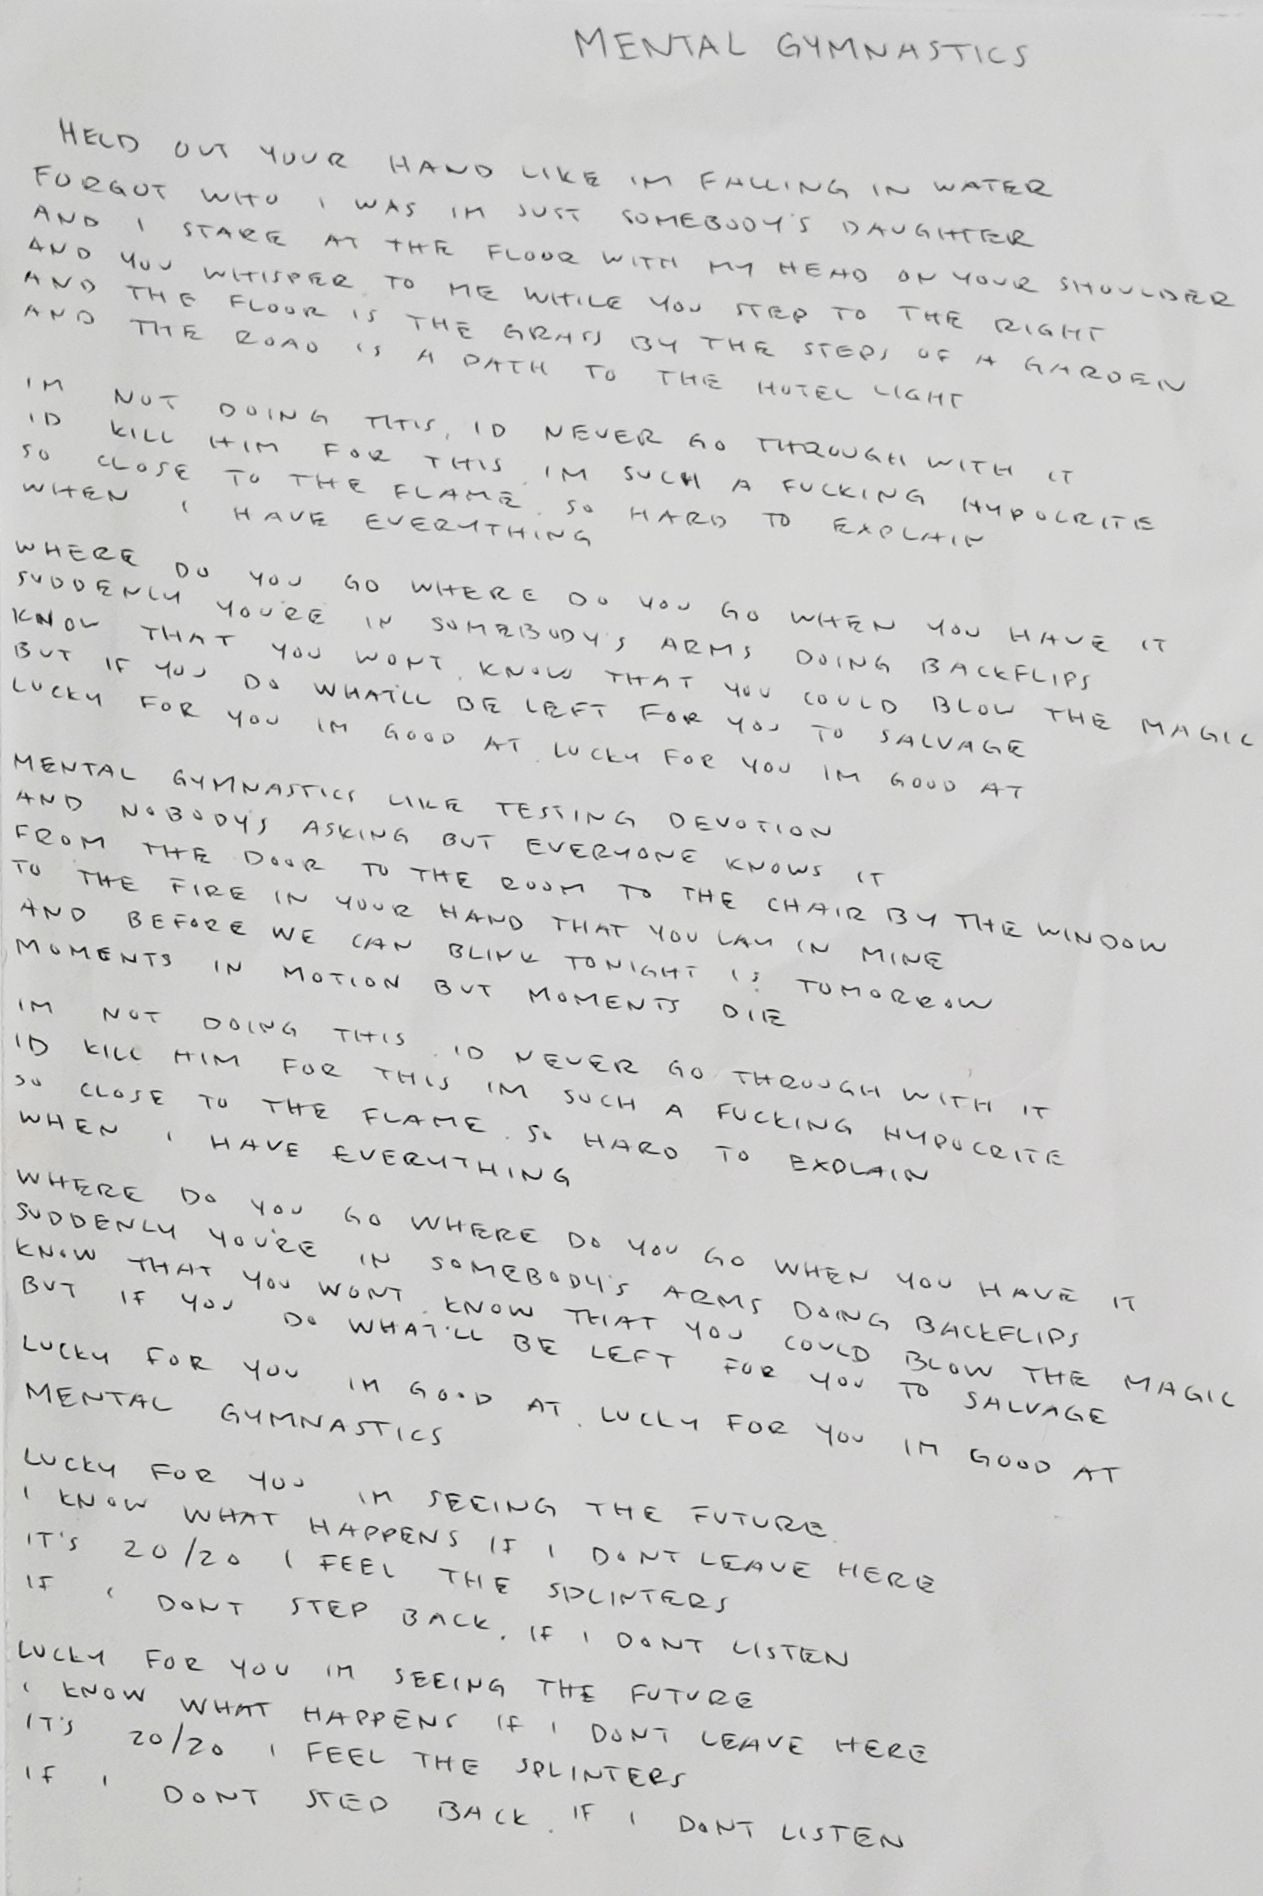 MENTAL GYMNASTICS
HELD OUT YOUR HAND LIKE IM FALLING IN WATER
FORGOT WHO I WAS IM JUST SOMEBODY'S DAUGHTER
AND I STARE AT THE FLOOR WITH MY HEAD ON YOUR SHOULDER
AND YOU WHISPER TO ME WHILE YOU STEP TO THE RIGHT
AND THE FLOOR IS THE GRASS BY THE STEPS OF A GARDEN
AND THE ROAD IS A PATH TO THE HOTEL LIGHT
IM NOT DOING THIS, ID NEVER GO THROUGH WITH IT
ID KILL HIM FOR THIS IM SUCH A FUCKING HYPOCRITE
SO CLOSE TO THE FLAME. SO HARD TO EXPLAIN
WHEN I HAVE EVERYTHING
WHERE DO YOU GO WHERE DO YOU GO WHEN YOU HAVE IT
SUDDENLY YOU'RE IN SOMEBODY'S ARMS DOING BACKFLIPS
KNOW THAT YOU WONT. KNOW THAT YOU COULD BLOW THE MAGIC
BUT IF YOU DO WHAT'LL BE LEFT FOR YOU TO SALVAGE
LUCKY FOR YOU IM GOOD AT. LUCKY FOR YOU IM GOOD AT
MENTAL GYMNASTICS LIKE TESTING DEVOTION
AND NOBODY'S ASKING BUT EVERYONE KNOWS IT
FROM THE DOOR TO THE ROOM TO THE CHAIR BY THE WINDOW
TO THE FIRE IN YOUR HAND THAT YOU LAY IN MINE
AND BEFORE WE CAN BLINK TONIGHT IS TOMORROW
MOMENTS IN MOTION BUT MOMENTS DIE
IM NOT DOING THIS. ID NEVER GO THROUGH WITH IT
ID KILL HIM FOR THIS IM SUCH A FUCKING HYPOCRITE
SO CLOSE TO THE FLAME. SO HARD TO EXPLAIN
WHEN I HAVE EVERYTHING
WHERE DO YOU GO WHERE DO YOU GO WHEN YOU HAVE IT
SUDDENLY YOU'RE IN SOMEBODY'S ARMS DOING BACKFLIPS
KNOW THAT YOU WONT. KNOW THAT YOU COULD BLOW THE MAGIC
BUT IF YOU DO WHAT'LL BE LEFT FOR YOU TO SALVAGE
LUCKY FOR YOU IM GOOD AT. LUCKY FOR YOU IM GOOD AT
MENTAL GYMNASTICS
LUCKY FOR YOU IM SEEING THE FUTURE.
I KNOW WHAT HAPPENS IF I DONT LEAVE HERE
IT'S 20/20 I FEEL THE SPLINTERS
IF I DONT STEP BACK. IF I DONT LISTEN
LUCKY FOR YOU IM SEEING THE FUTURE
I KNOW WHAT HAPPENS IF I DONT LEAVE HERE
IT'S 20/20 I FEEL THE SPLINTERS
IF I DONT STEP BACK. IF I DONT LISTEN